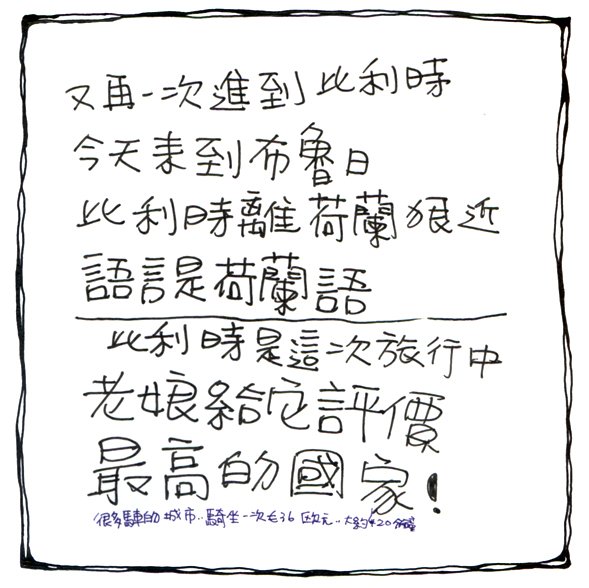 又再一次進到比利時
今天來到布魯日
比利時離荷蘭狠近
語言是荷蘭語
比利時是這次旅行中
老娘給它評價
最高的國家!
很多馬車的城市..騎坐一次€36歐元..大約20分鐘